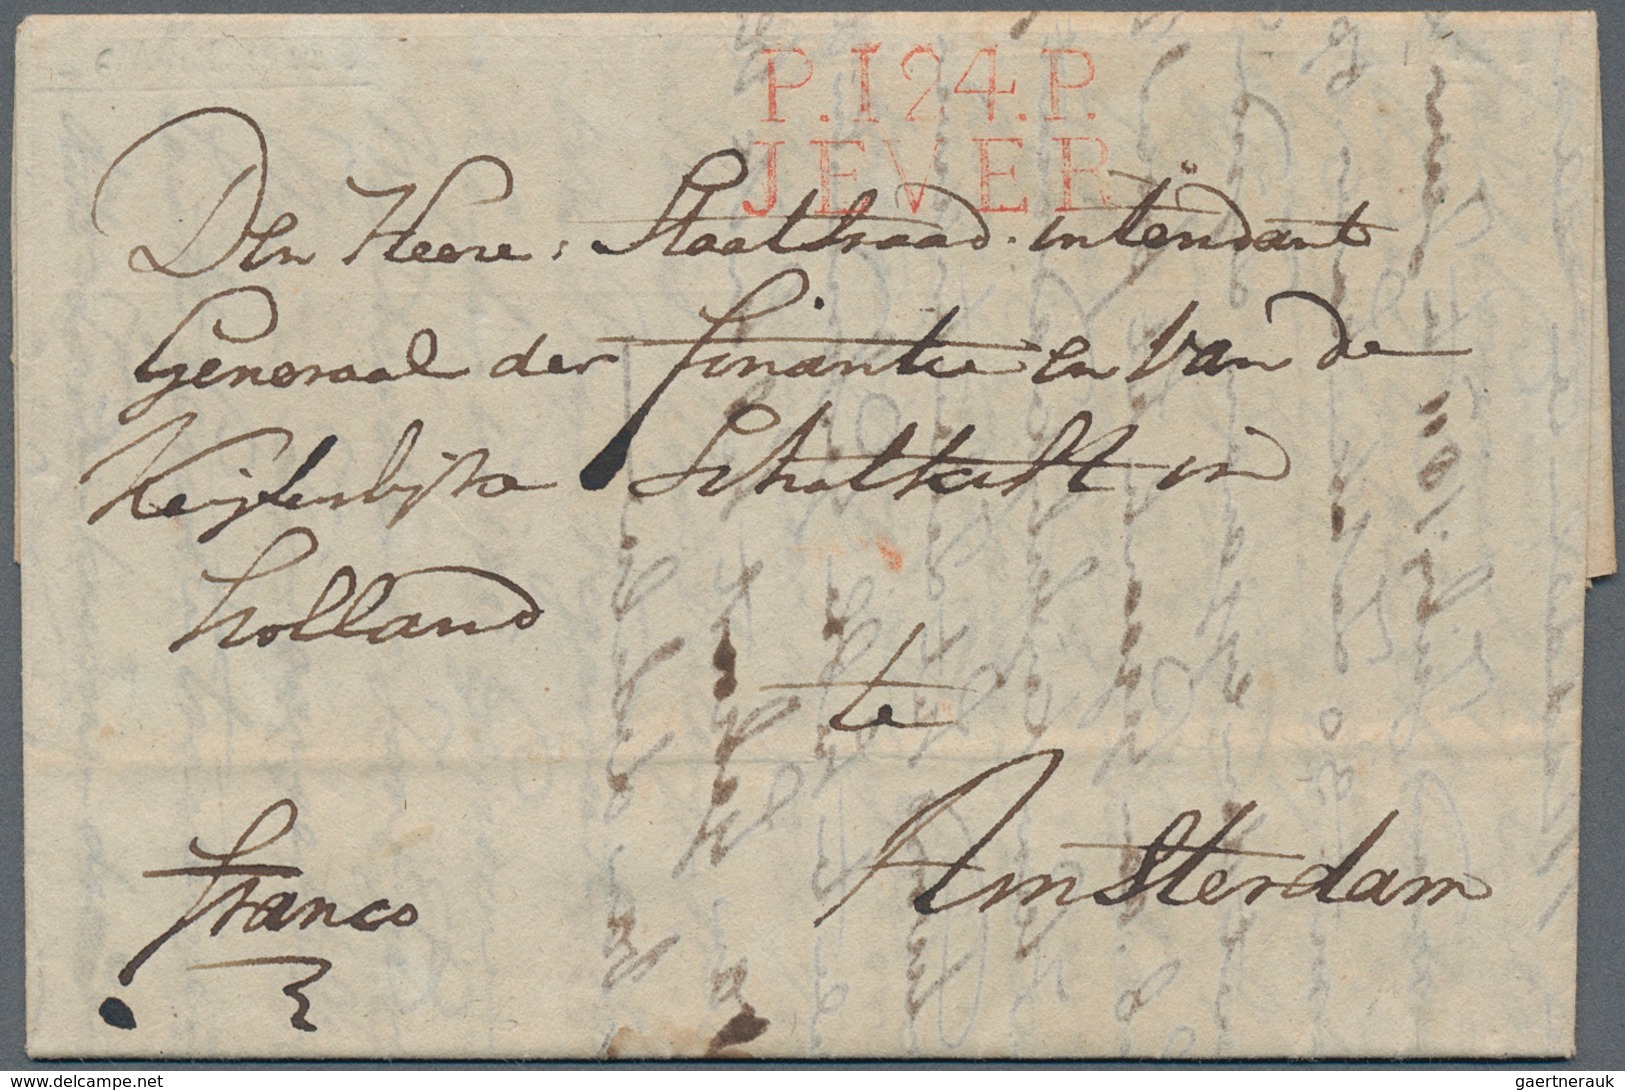 P.124.P.
JEVER
Den Heere, Staatsraad intendant
Generaal der finantie en van de
Keijserlijke Schatkist in
holland
te
Amsterdam
franco
delcampe.net
gaertnerauk